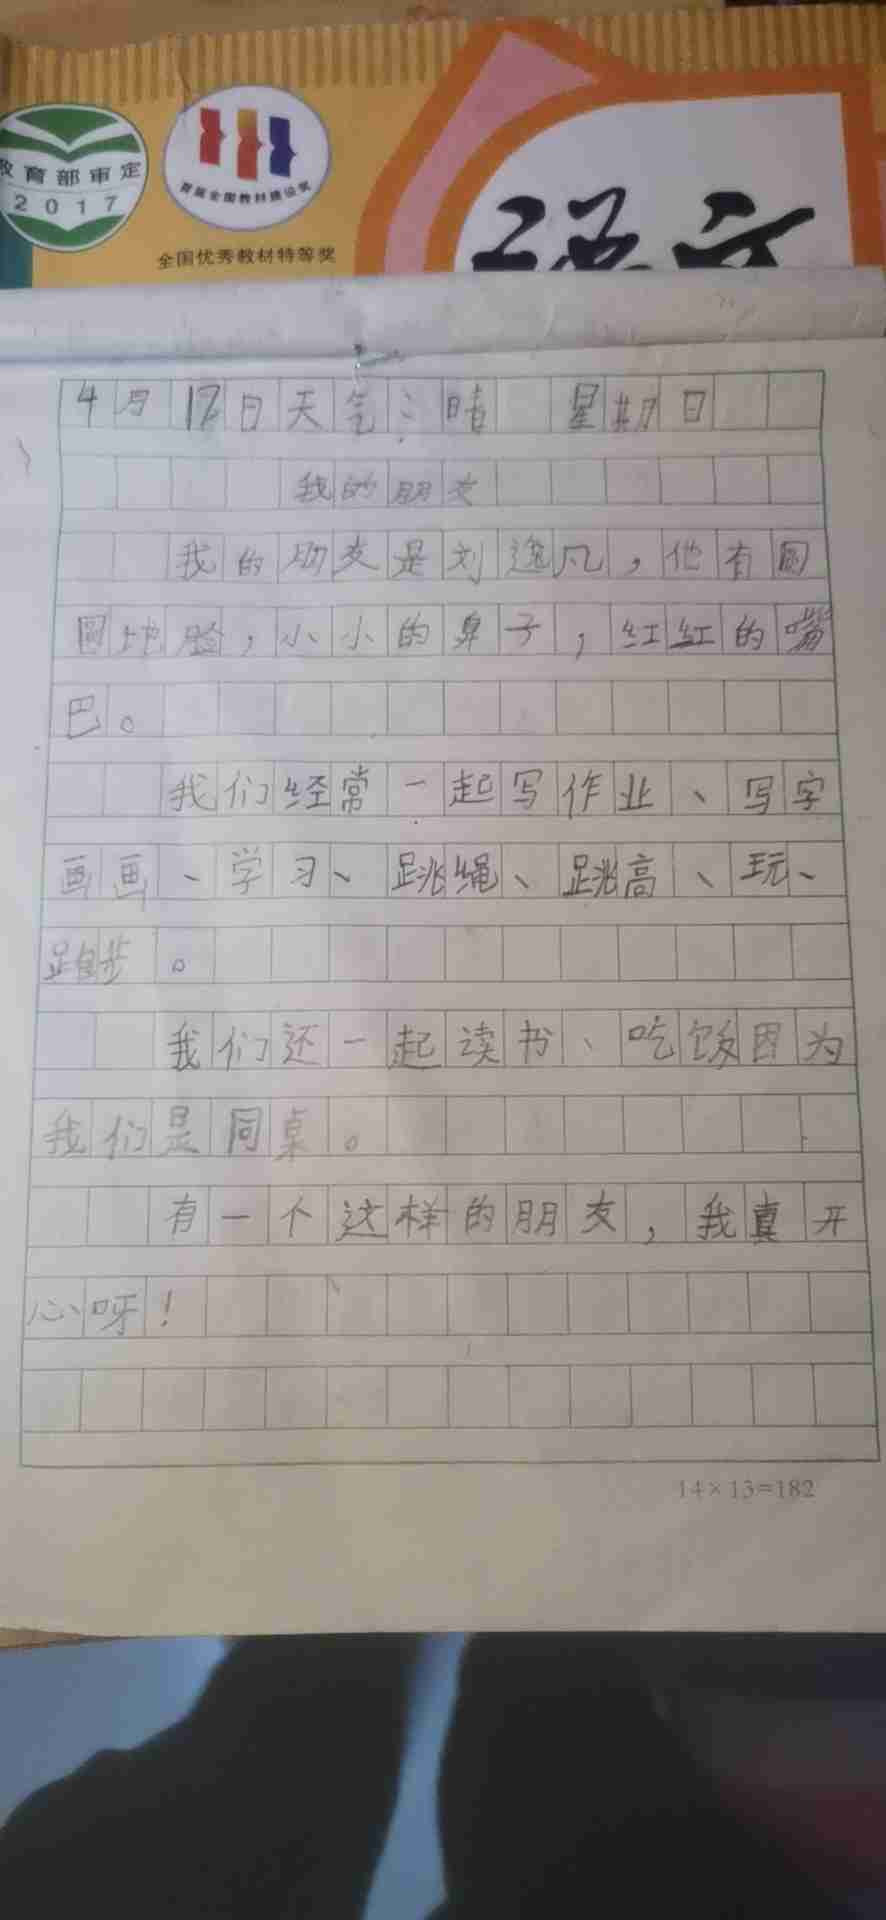 教育部审定
2017
首届全国教材建设奖
全国优秀教材特等奖
语文
4月12日天气:晴 星期日
我的朋友
我的朋友是刘逸凡,他有圆
圆地脸,小小的鼻子,红红的嘴
巴。
我们经常一起写作业、写字
画画、学习、跳绳、跳高、玩、
步。
我们还一起读书、吃饭因为
我们是同桌。
有一个这样的朋友,我真开
心呀!
14×13=182